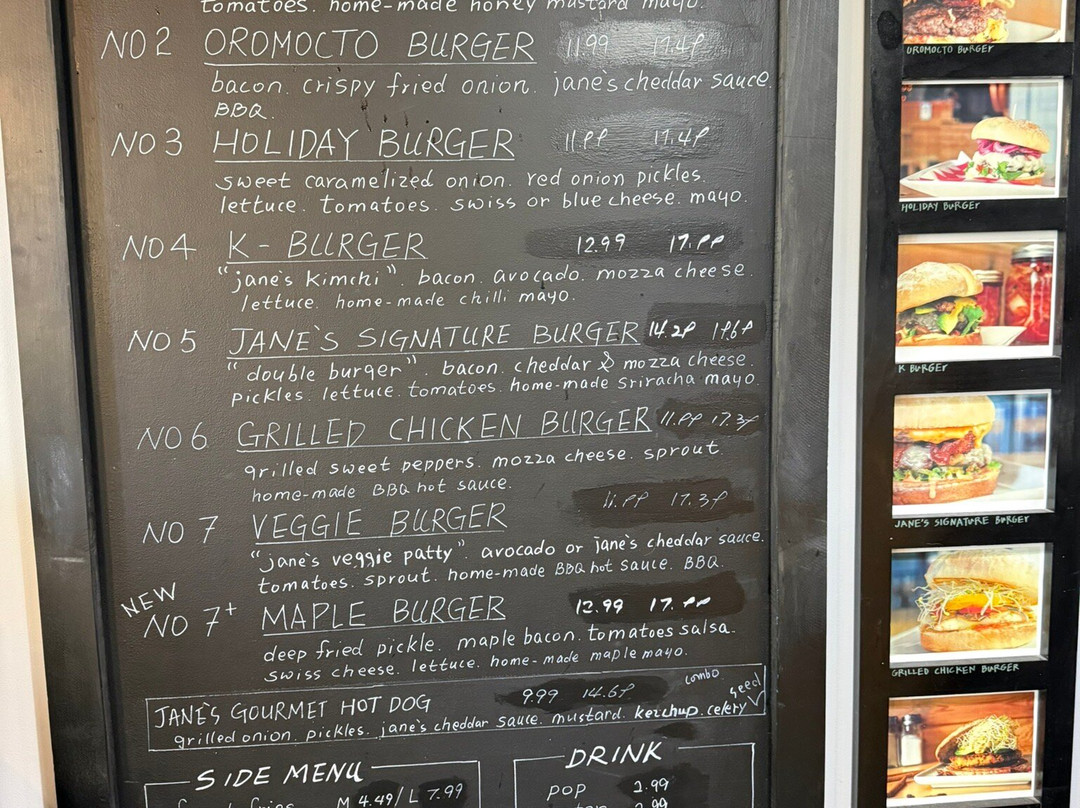 tomatoes. home-made honey mustard mayo.
NO 2 OROMOCTO BURGER 11.99 17.49
bacon. crispy fried onion. jane's cheddar sauce.
BBQ.
NO 3 HOLIDAY BURGER 11.99 17.49
sweet caramelized onion. red onion pickles.
lettuce. tomatoes. swiss or blue cheese. mayo.
NO 4 K-BURGER 12.99 17.99
"jane's kimchi". bacon. avocado. mozza cheese.
lettuce. home-made chilli mayo.
NO 5 JANE'S SIGNATURE BURGER 14.29 19.69
"double burger". bacon. cheddar & mozza cheese.
pickles. lettuce. tomatoes. home-made sriracha mayo.
NO 6 GRILLED CHICKEN BURGER 11.99 17.39
grilled sweet peppers. mozza cheese. sprout.
home-made BBQ hot sauce.
NO 7 VEGGIE BURGER 11.99 17.39
"jane's veggie patty". avocado or jane's cheddar sauce.
tomatoes. sprout. home-made BBQ hot sauce. BBQ.
NEW
NO 7+ MAPLE BURGER 12.99 17.99
deep fried pickle. maple bacon. tomatoes salsa.
swiss cheese. lettuce. home-made maple mayo.
JANE'S GOURMET HOT DOG 9.99 14.69 combo
grilled onion. pickles. jane's cheddar sauce. mustard. ketchup. celery seed
SIDE MENU
M 4.49/L 7.99
DRINK
POP 2.99
OROMOCTO BURGER
HOLIDAY BURGER
K BURGER
JANE'S SIGNATURE BURGER
GRILLED CHICKEN BURGER